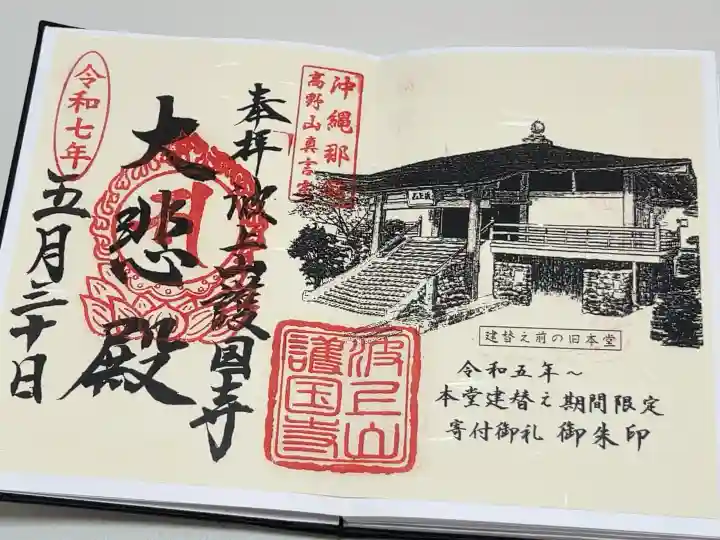 沖縄那覇
高野山真言宗
奉拝 波上山護国寺
大悲殿
令和七年
五月三十日
波上山
護国寺
建替え前の旧本堂
令和五年～
本堂建替え期間限定
寄付御礼 御朱印